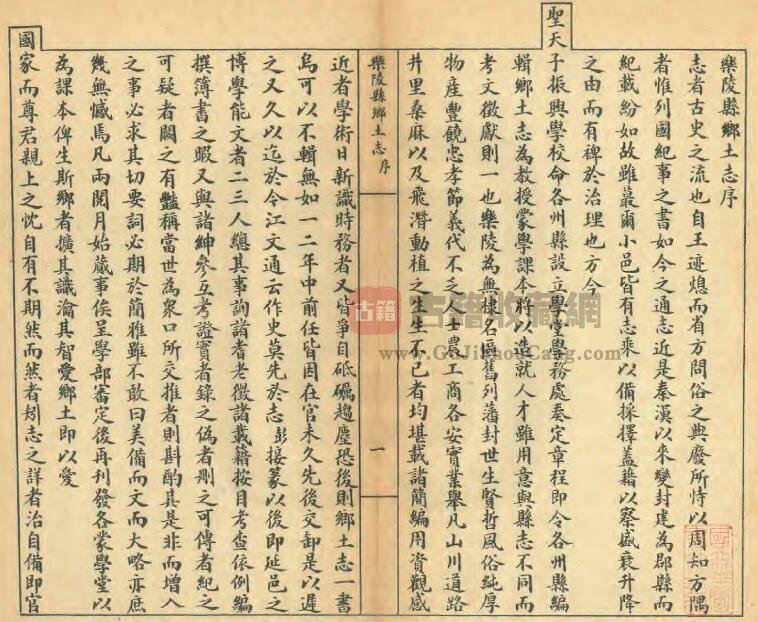 樂陵縣鄉土志序
志者古史之流也自王迹熄而省方問俗之典廢所恃以周知方隅
者惟列國紀事之書如今之通志近是秦漢以來變封建為郡縣而
紀載紛如故雖蕞爾小邑皆有志乘以備採擇蓋藉以察盛衰升降
之由而有裨於治理也方今
聖天子振興學校命各州縣設立學堂學務處奏定章程即令各州縣編
輯鄉土志為教授蒙學課本將以造就人才雖用意與縣志不同而
考文徵獻則一也樂陵為無棣名區舊列藩封世生賢哲風俗純厚
物產豐饒忠孝節義代不乏人士農工商各安實業舉凡山川道路
井里桑麻以及飛潛動植之生生不已者均堪載諸簡編用資觀感
樂陵縣鄉土志 序
一
近者學術日新識時務者又皆爭自砥礪趨塵恐後則鄉土志一書
烏可以不輯無如一二年中前任皆因在官未久先後交卸是以遲
之又久以迄於今江文通云作史莫先於志彭接篆以後即延邑之
博學能文者二三人總其事詢諸耆老徵諸載籍按目考查依例編
撰簿書之暇又與諸紳參互考證實者錄之偽者刪之可傳者紀之
可疑者闕之有豔稱當世為眾口所交推者則斟酌其是非而增入
之事必求其切要詞必期於簡雅雖不敢曰美備而文而大略亦庶
幾無憾焉凡兩閱月始蕆事俟呈學部審定後再刊發各蒙學堂以
為課本俾生斯鄉者擴其識瀹其智愛鄉土即以愛
國家而尊君親上之忱自有不期然而然者矧志之詳者治自備即官
古籍
古籍收藏網
www.GuJiShouCang.com